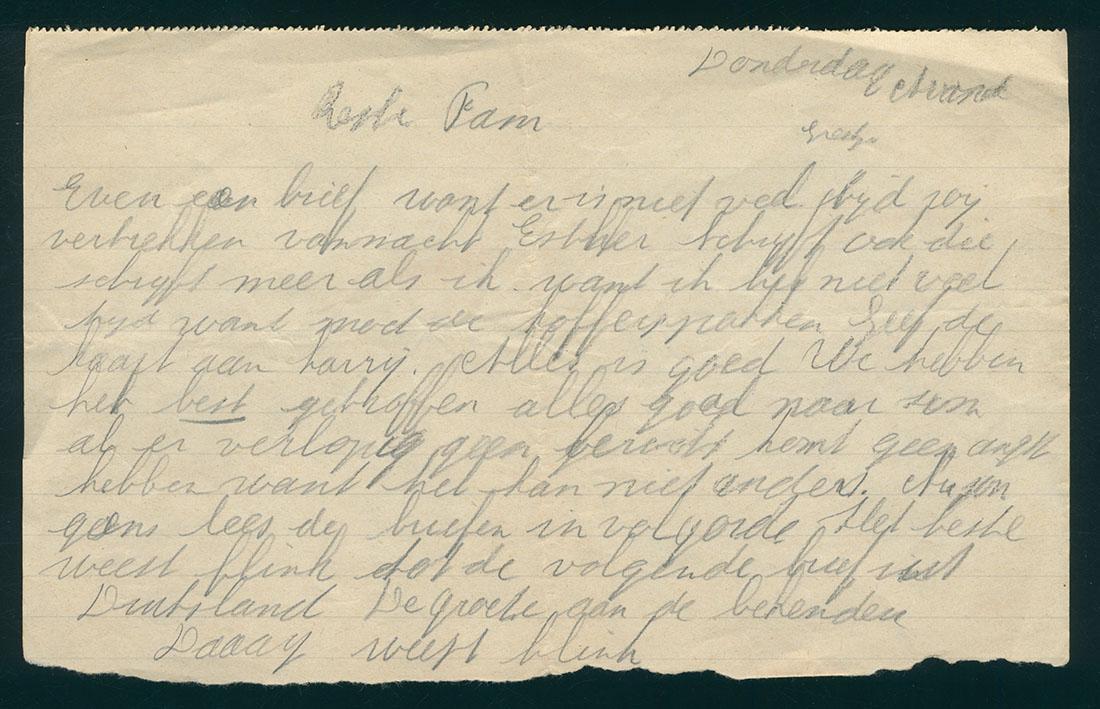 Donderdag Avond
Beste Fam
Even een brief want er is niet veel tijd wij
vertrekken vannacht Esther schrijft ook die
schrijft meer als ik want ik heb niet veel
tijd want moet de koffers pakken Geef de
kaart aan Harrij. Alles is goed We hebben
het best getroffen alles goed naar
als er verlopig geen bericht komt geen angst
hebben want het kan niet anders.
lees de briefen in volgorde Het beste
weest flink tot de volgende brief uit
Duitsland De groete aan de bekenden
Daaag weest flink